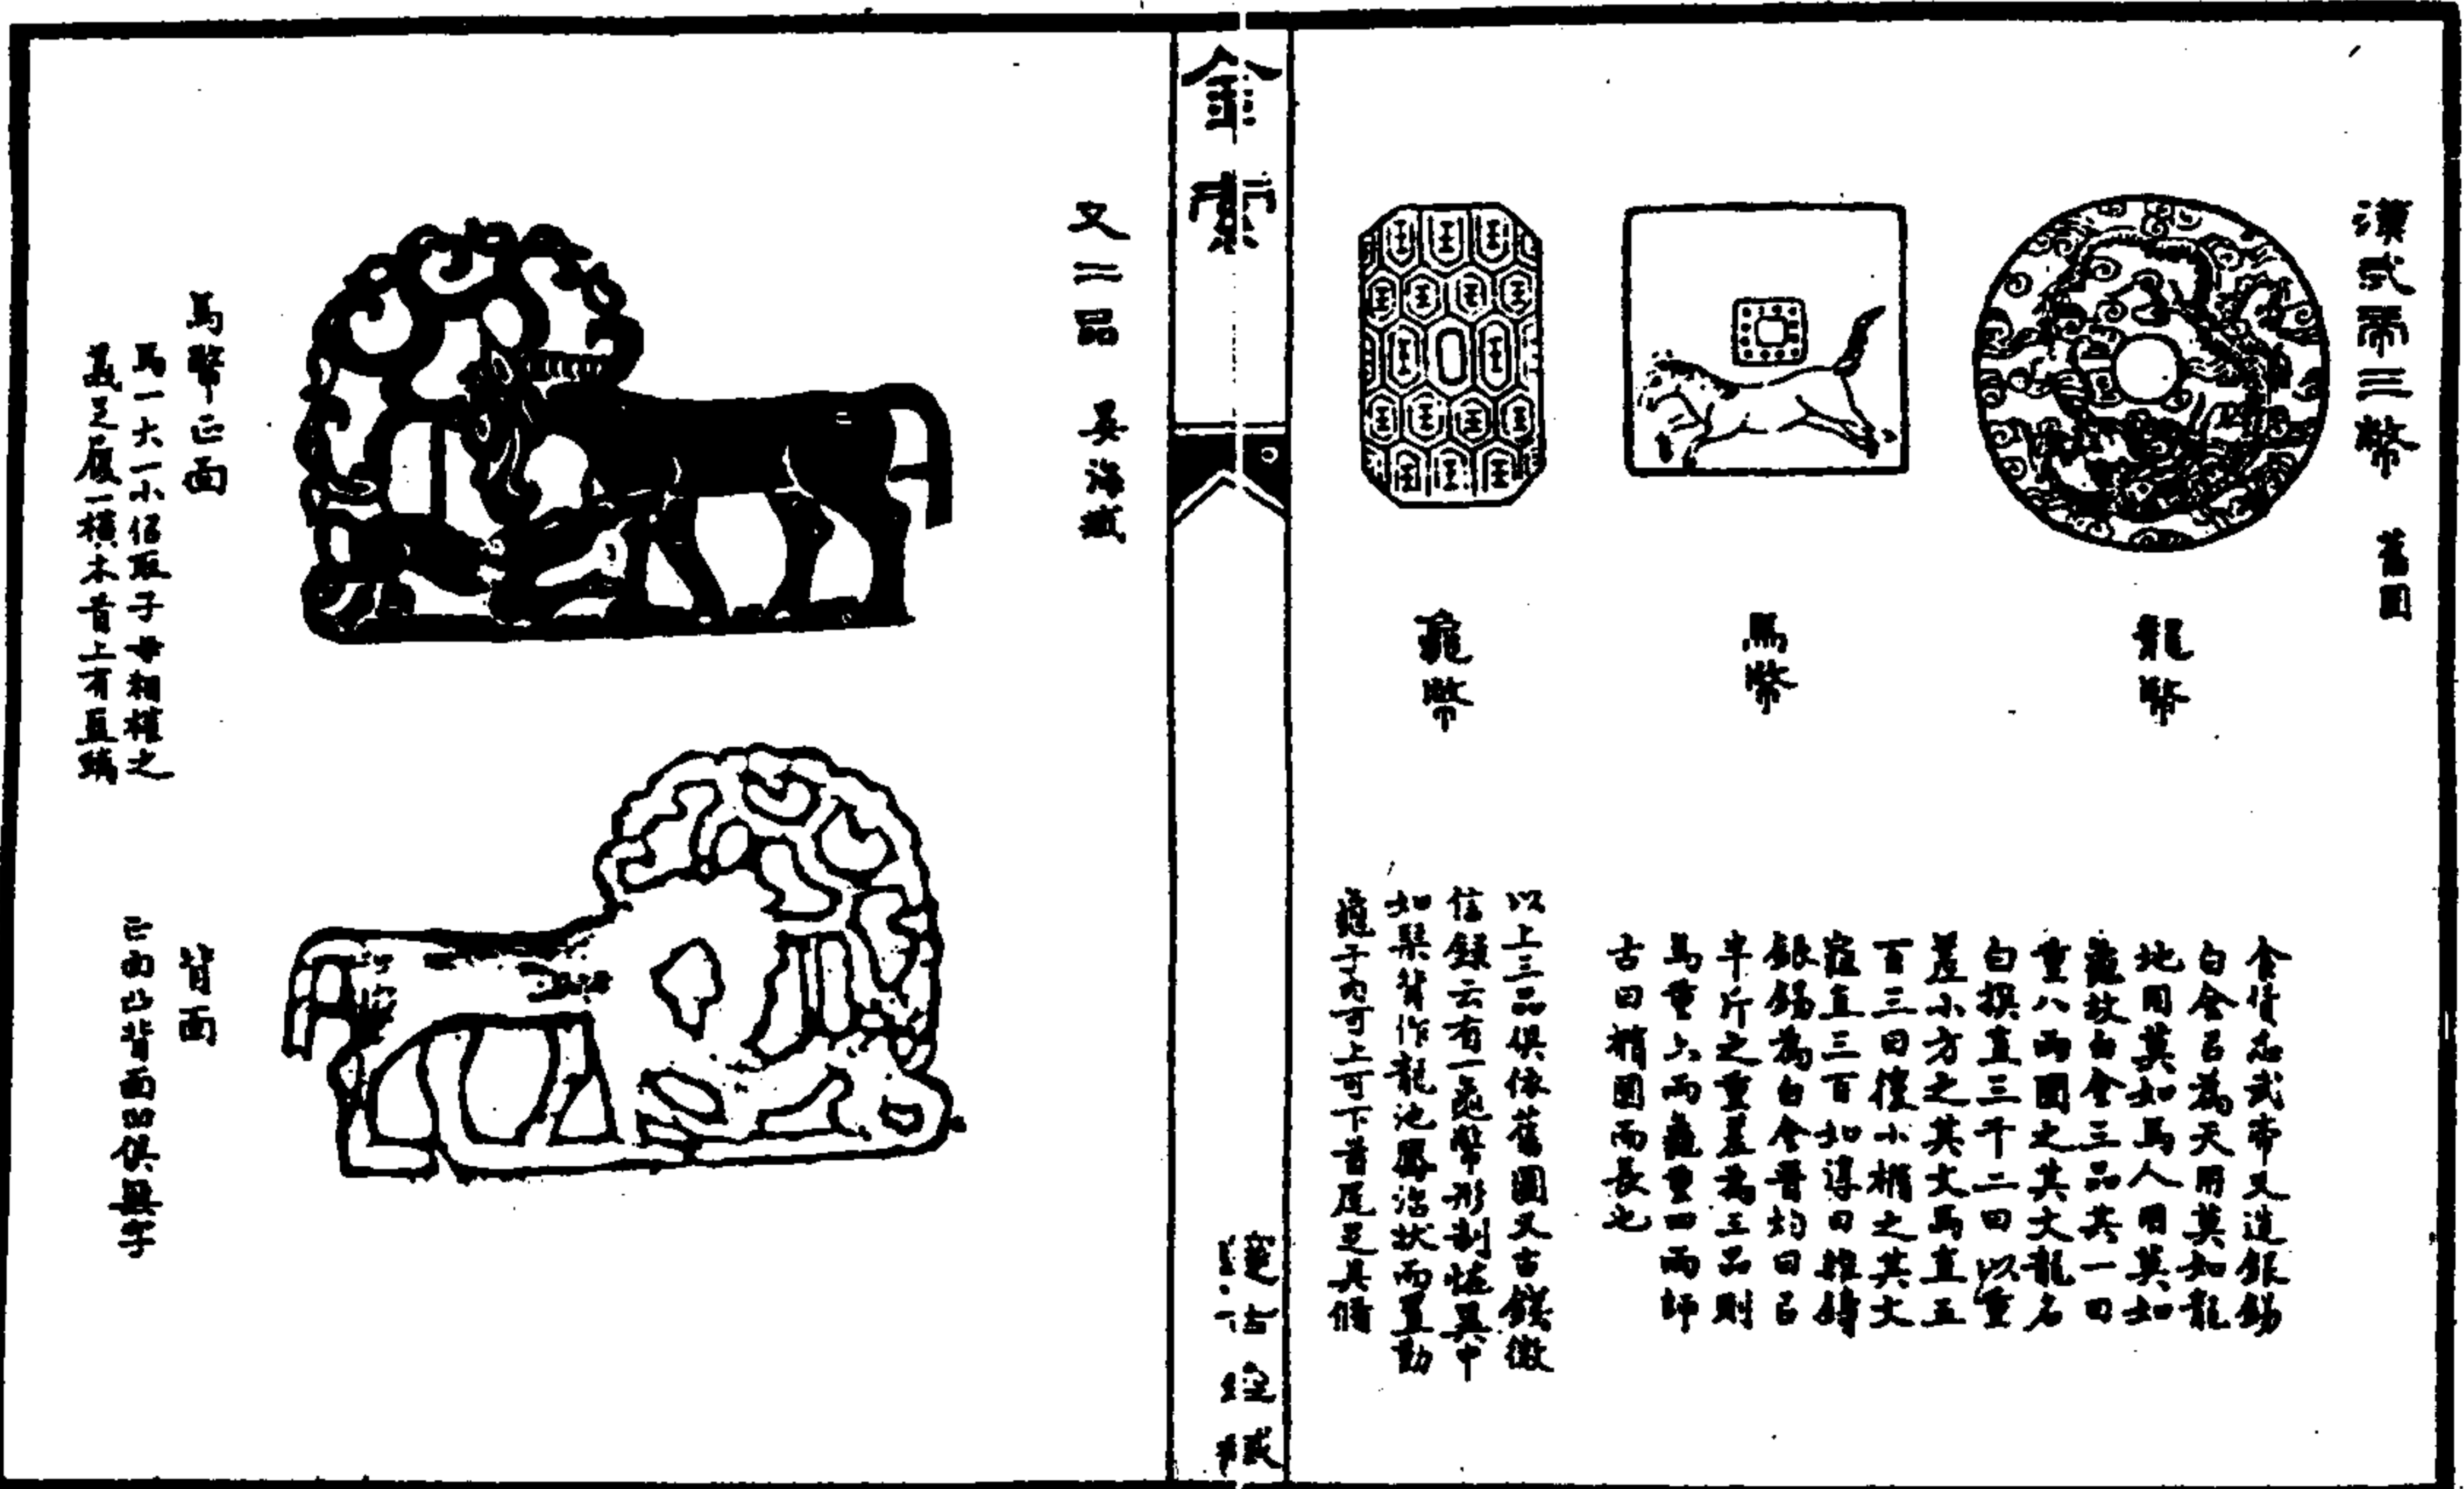 漢武帝三幣　舊圖
龍幣
馬幣
龜幣
食貨志武帝又造銀錫
白金以為天用莫如龍
地用莫如馬人用莫如
龜故白金三品其一曰
重八兩圜之其文龍名
白撰直三千二曰以重
差小方之其文馬直五
百三曰復小橢之其文
龜直三百如淳曰雜鑄
銀錫為白金晉灼曰以
半斤之重差為三品則
馬重六兩龜重四兩師
古曰橢圜而長也
以上三品俱依舊圖又吉鏌徵
信錄云有一龜幣形制怪異中
如琴背作龍池鳳沼狀而置勒
龜于內可上可下首尾足具備
金索
邃古
藏
又二品　吳江藏
馬幣正面
馬一大一小佀取子母相權之
義足履一橫木首上有直
背面
正面凸背面凹俱無字